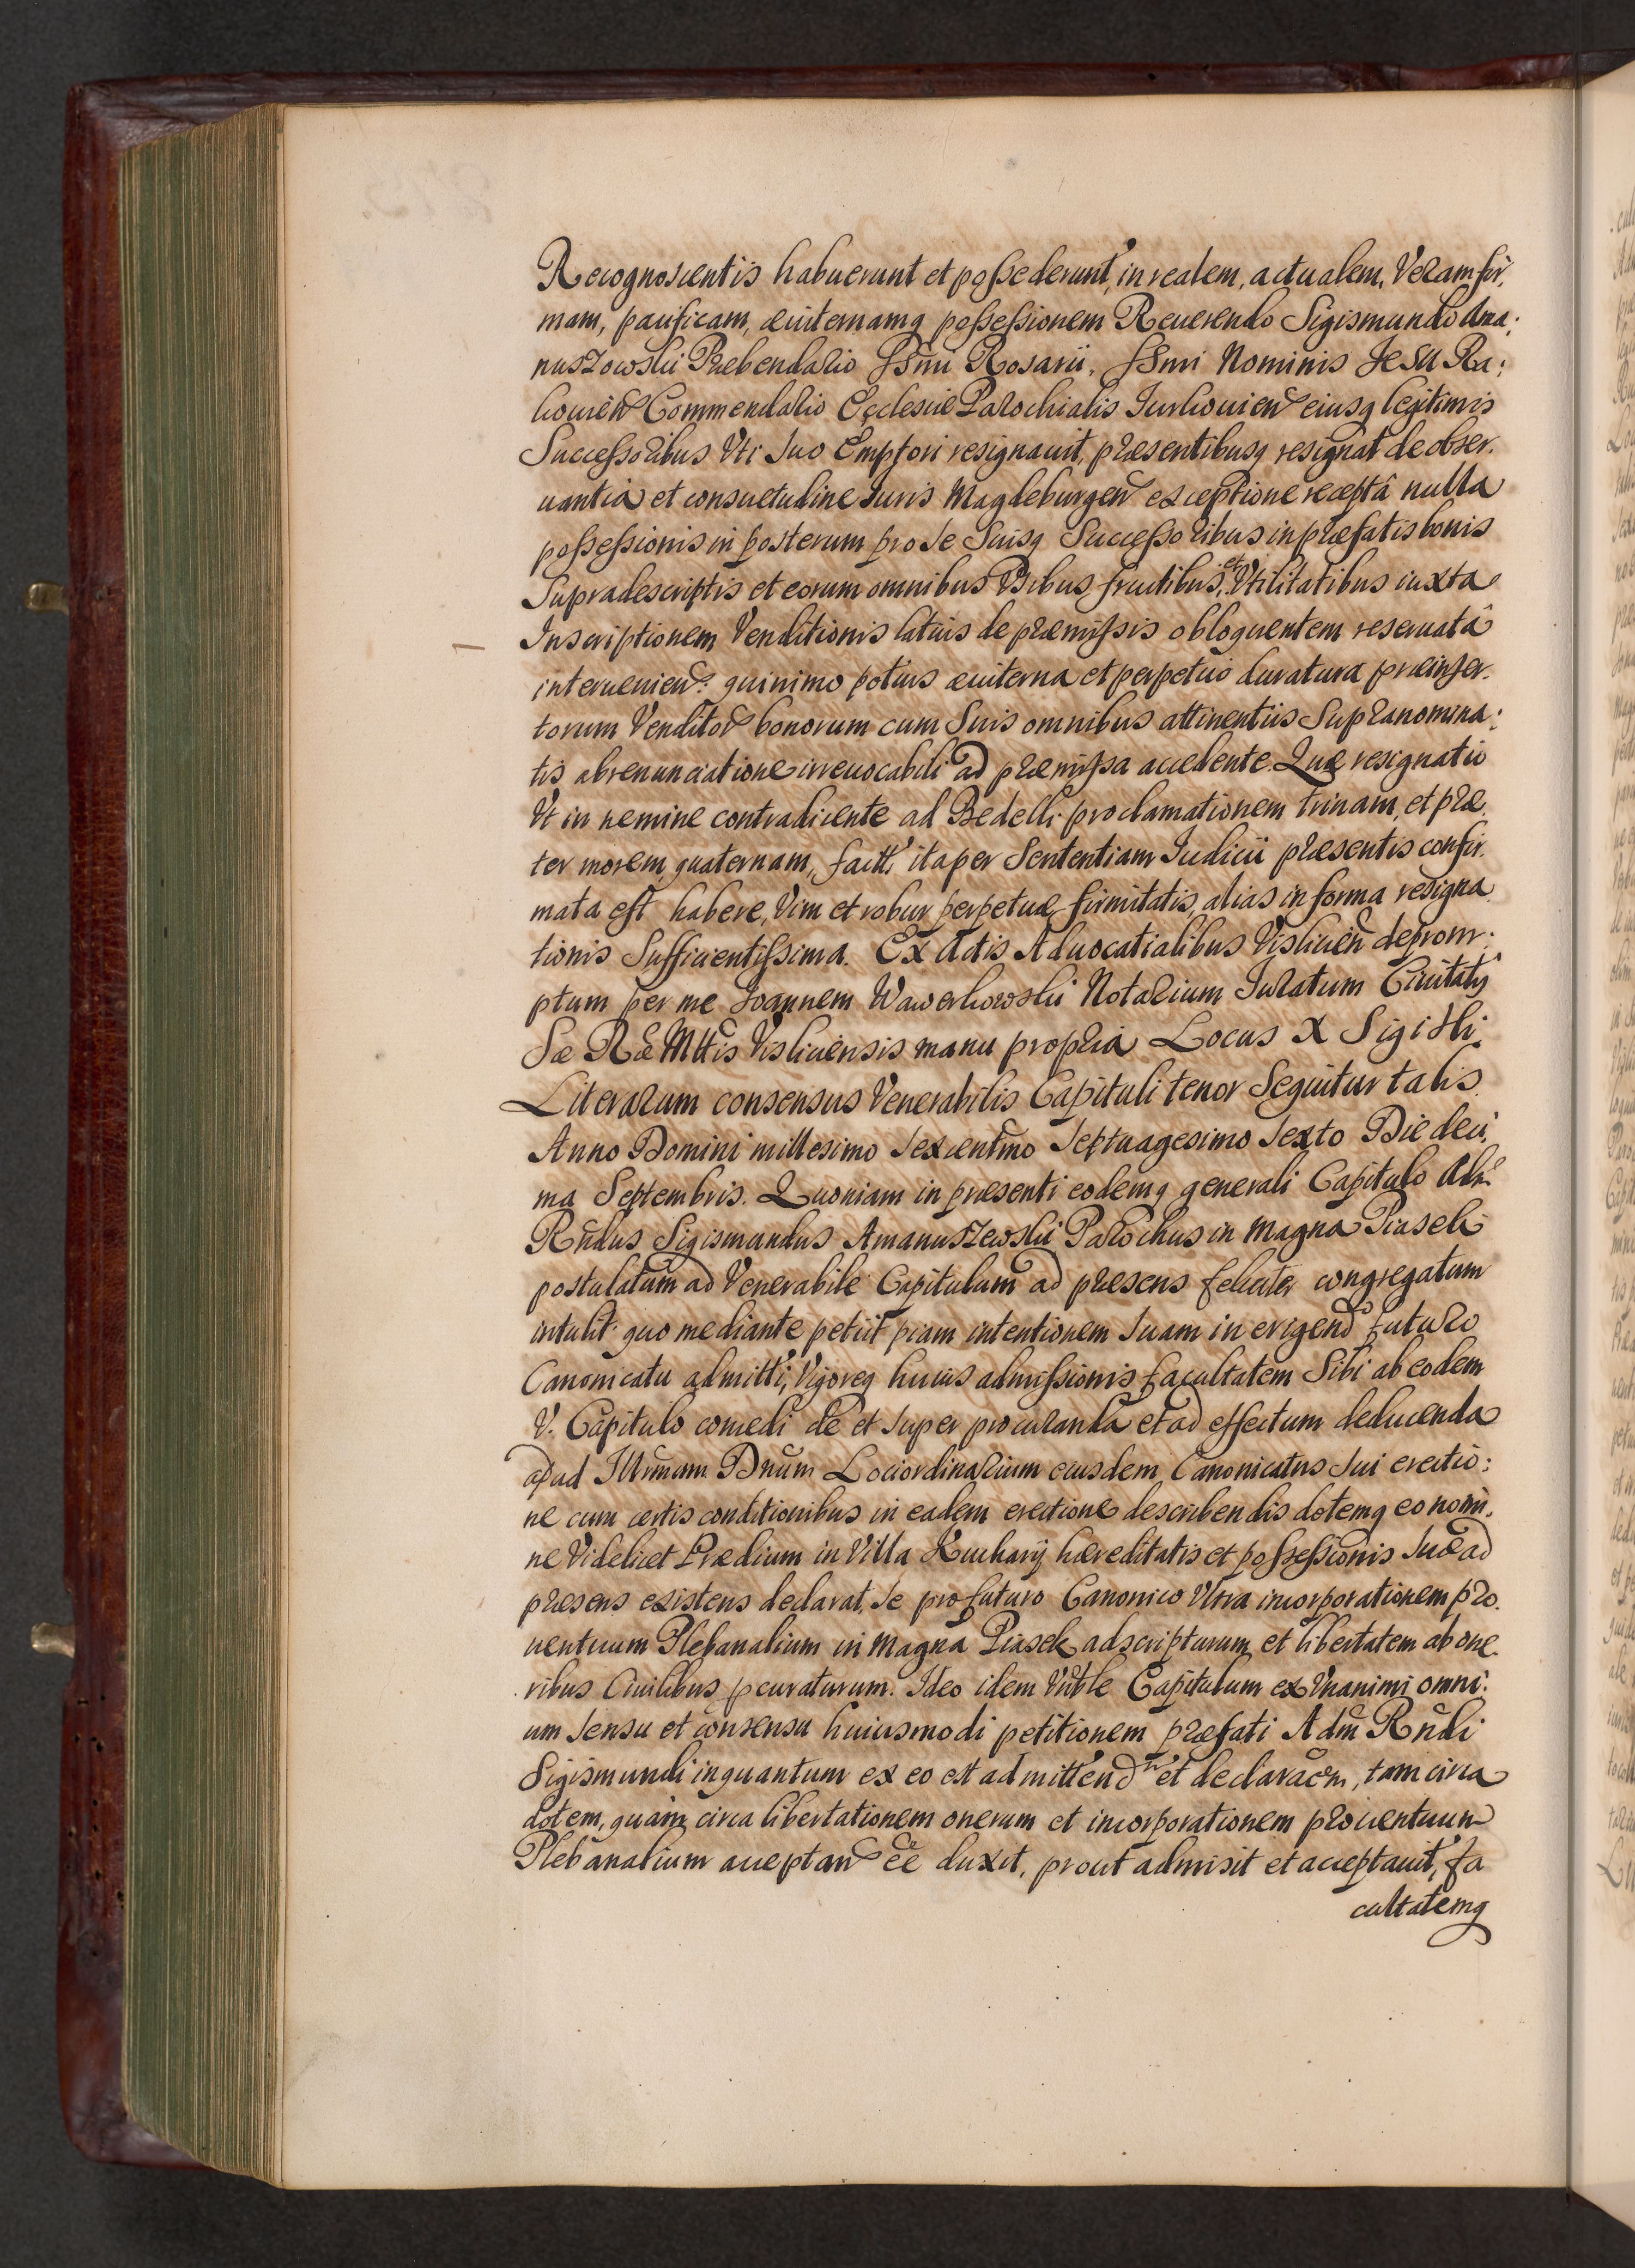 Recognoscentis habuerunt et possederunt, in realem, actualem, Veram fir,
mam, pacificam, æuiternamq possessionem Reuerendo Sigismundo Ama:
nuszowski Præbendario SSmi Rosarii, SSmi Nominis JESU Ra:
kouien Commendario Ecclesiæ Parochialis Jurkouien eiusq legitimis
Successoribus Vti suo Emptori resignauit, præsentibusq resignat de obser.
uantia et consuetudine Iuris Magdeburgen exceptione receptâ nulla
possessionis in posterum pro se Suisq Successoribus in præfatis bonis
Supradescriptis et eorum omnibus Vsibus fructibus, et Vtilitatibus iuxta
Inscriptionem Venditionis latius de præmissis obloquentem reseruatâ
interuenien: quinimo potius æuiterna et perpetuo duratura præinser.
torum Venditor bonorum cum Suis omnibus attinentiis Supranomina:
tis abrenunciatione irreuocabili ad præmissa accedente. Quæ resignatio
Vt in nemine contradicente ad Bedelli proclamationem trinam, et præ
ter morem quaternam, facta ita per Sententiam Iudicii præsentis confir.
mata est habere, Vim et robur perpetuæ firmitatis, alias in forma resigna.
tionis Sufficientissima. Ex Actis Aduocatialibus Vislicien deprom:
ptum per me Joannem Wawerkowski Notarium Iuratum Ciuitatis
Sæ Ræ Mttis Visliciensis manu propria Locus X Sigilli.
Literarum consensus Venerabilis Capituli tenor Sequitur talis.
Anno Domini millesimo sexcentmo Septuagesimo sexto Die deci,
ma Septembris. Quoniam in præsenti eodemq generali Capitulo Adm
Rndus Sigismundus Amanuszewski Parochus in Magna Piasek
postulatum ad Venerabile Capitulum ad præsens feliciter congregatum
intulit quo mediante petiit piam intentionem suam in erigendo futuro
Canonicatu admitti, Vigoreq huius admissionis facultatem Sibi ab eodem
V. Capitulo concedi de et super procuranda et ad effectum deducenda
apud Illrmum Dnum Lociordinarium eiusdem Canonicatus sui erectio:
ne cum certis conditionibus in eadem erectione describendis dotemq eo nomi,
ne Videlicet Prædium in Villa Kuchary hæreditatis et possessionis suæ ad
præsens existens declarat, se pro futuro Canonico Vltra incorporationem pro.
uentuum Plebanalium in Magna Piasek adscripturum et libertatem ab one.
ribus Ciuilibus pcuraturum. Ideo idem Vnble Capitulum ex Vnanimi omni:
um sensu et consensu huiusmodi petitionem præfati Adm Rndi
Sigismundi inquantum ex eo est admittend et declaracom, tam circa
dotem, quàm circa libertationem onerum et incorporationem prouentuum
Plebanalium acceptand ee duxit, prout admisit et acceptauit, fa
cultatemq